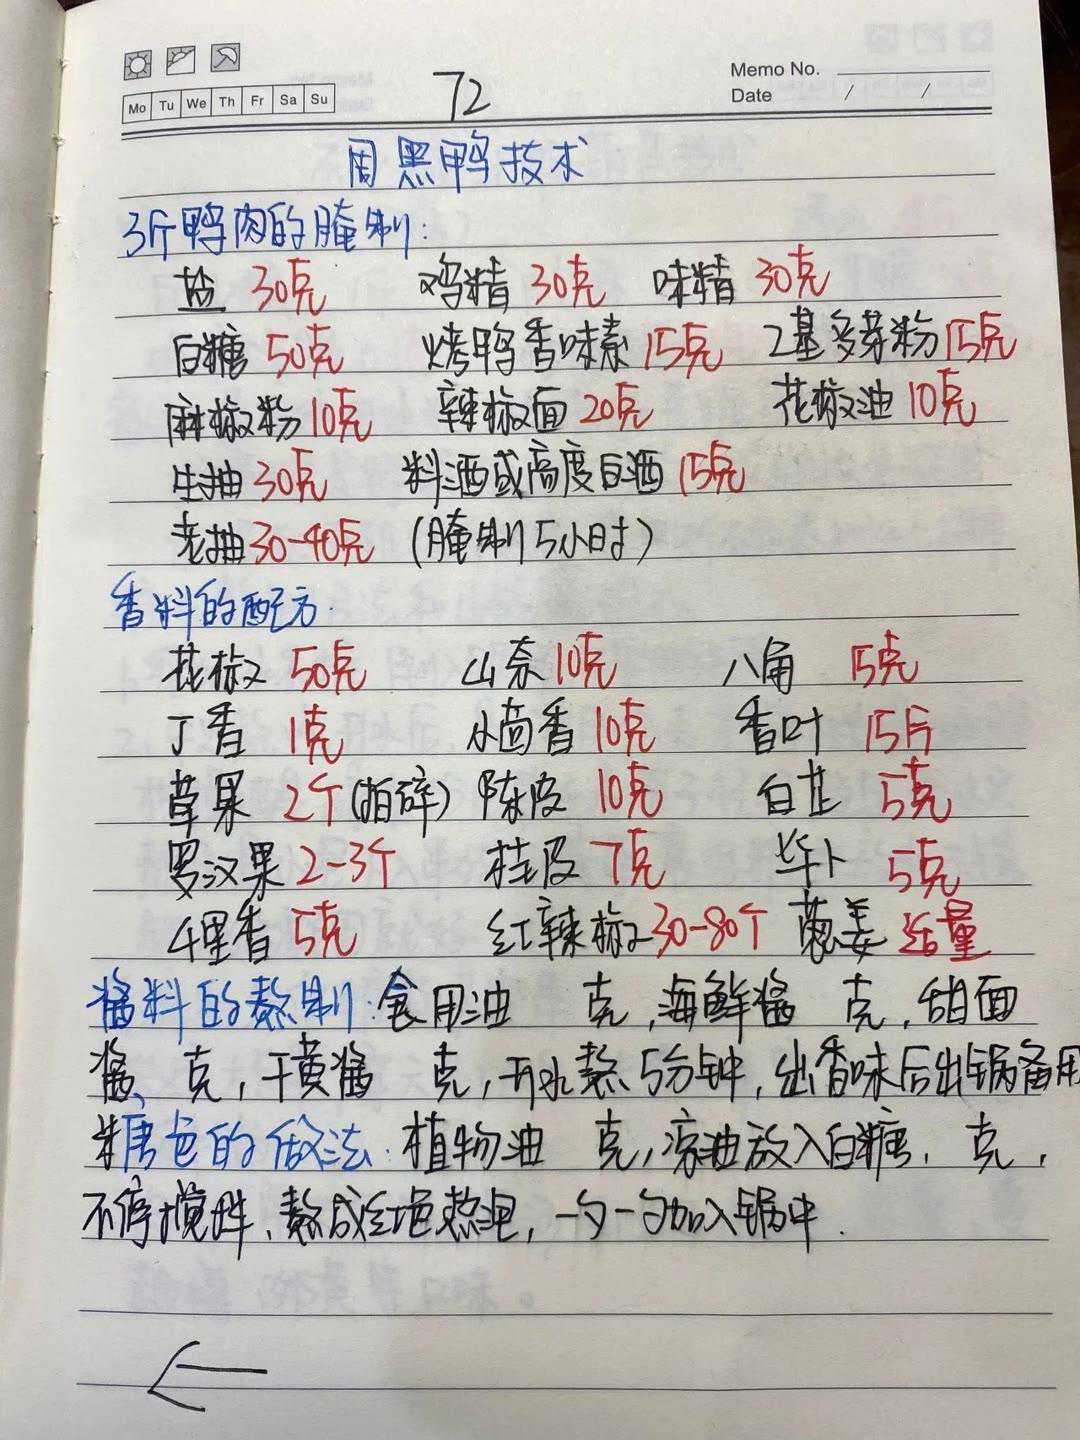 Mo Tu We Th Fr Sa Su
72
Memo No.
Date / /
周黑鸭技术
3斤鸭肉的腌制:
盐 30克 鸡精 30克 味精 30克
白糖 50克 烤鸭香味素 15克 乙基多芽粉 15克
麻椒粉 10克 辣椒面 20克 花椒油 10克
生抽 30克 料酒或高度白酒 15克
老抽 30-40克 (腌制5小时)
香料的配方.
花椒 50克 山奈 10克 八角 15克
丁香 1克 小茴香 10克 香叶 15片
草果 2个(拍碎) 陈皮 10克 白芷 5克
罗汉果 2-3个 桂皮 7克 毕卜 5克
千里香 5克 红辣椒 30-80个 葱姜 适量
酱料的熬制: 食用油 克, 海鲜酱 克, 甜面
酱、 克, 干黄酱 克, 开水熬5分钟, 出香味后出锅备用
糖色的做法: 植物油 克, 凉油放入白糖, 克,
不停搅拌, 熬成红色热泡, 一勺一勺加入锅中.